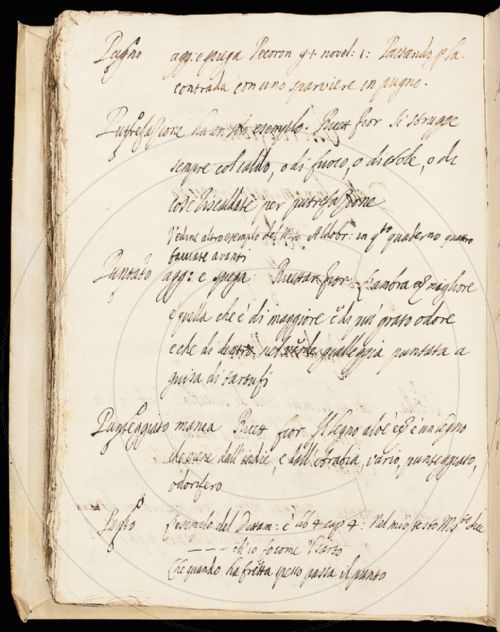 Pugno agg: e spiega Pecoron g. 1. novel: 1: Passando p la
contrada con uno sparviere in pugno.
Putrefazione ha un sto esempio. Ricet fior Si strugge
sempre col caldo, o di fuoco, o di sole, o di
cose riscaldate per putrefazione
Vedine altro esempio del Mro Aldobr: in qto quaderno quattro
facciate avanti
Puntato agg: e spiega Ricettar fior L'ambra migliore
è quella che è di maggiore e di piu' grato odore
e che di dentro nel verde gialleggia puntata a
guisa di tartufi
Punteggiato manca Ricet fior Il legno aloè è un legno
che viene dall'Indie, e dall'Arabia, vario, punteggiato,
odorifero
Punto l'esempio del Dittam: è lib 4 cap 4: Nel mio testo dice
ch'io fo come
Che quando ha fretta spesso passa il punto